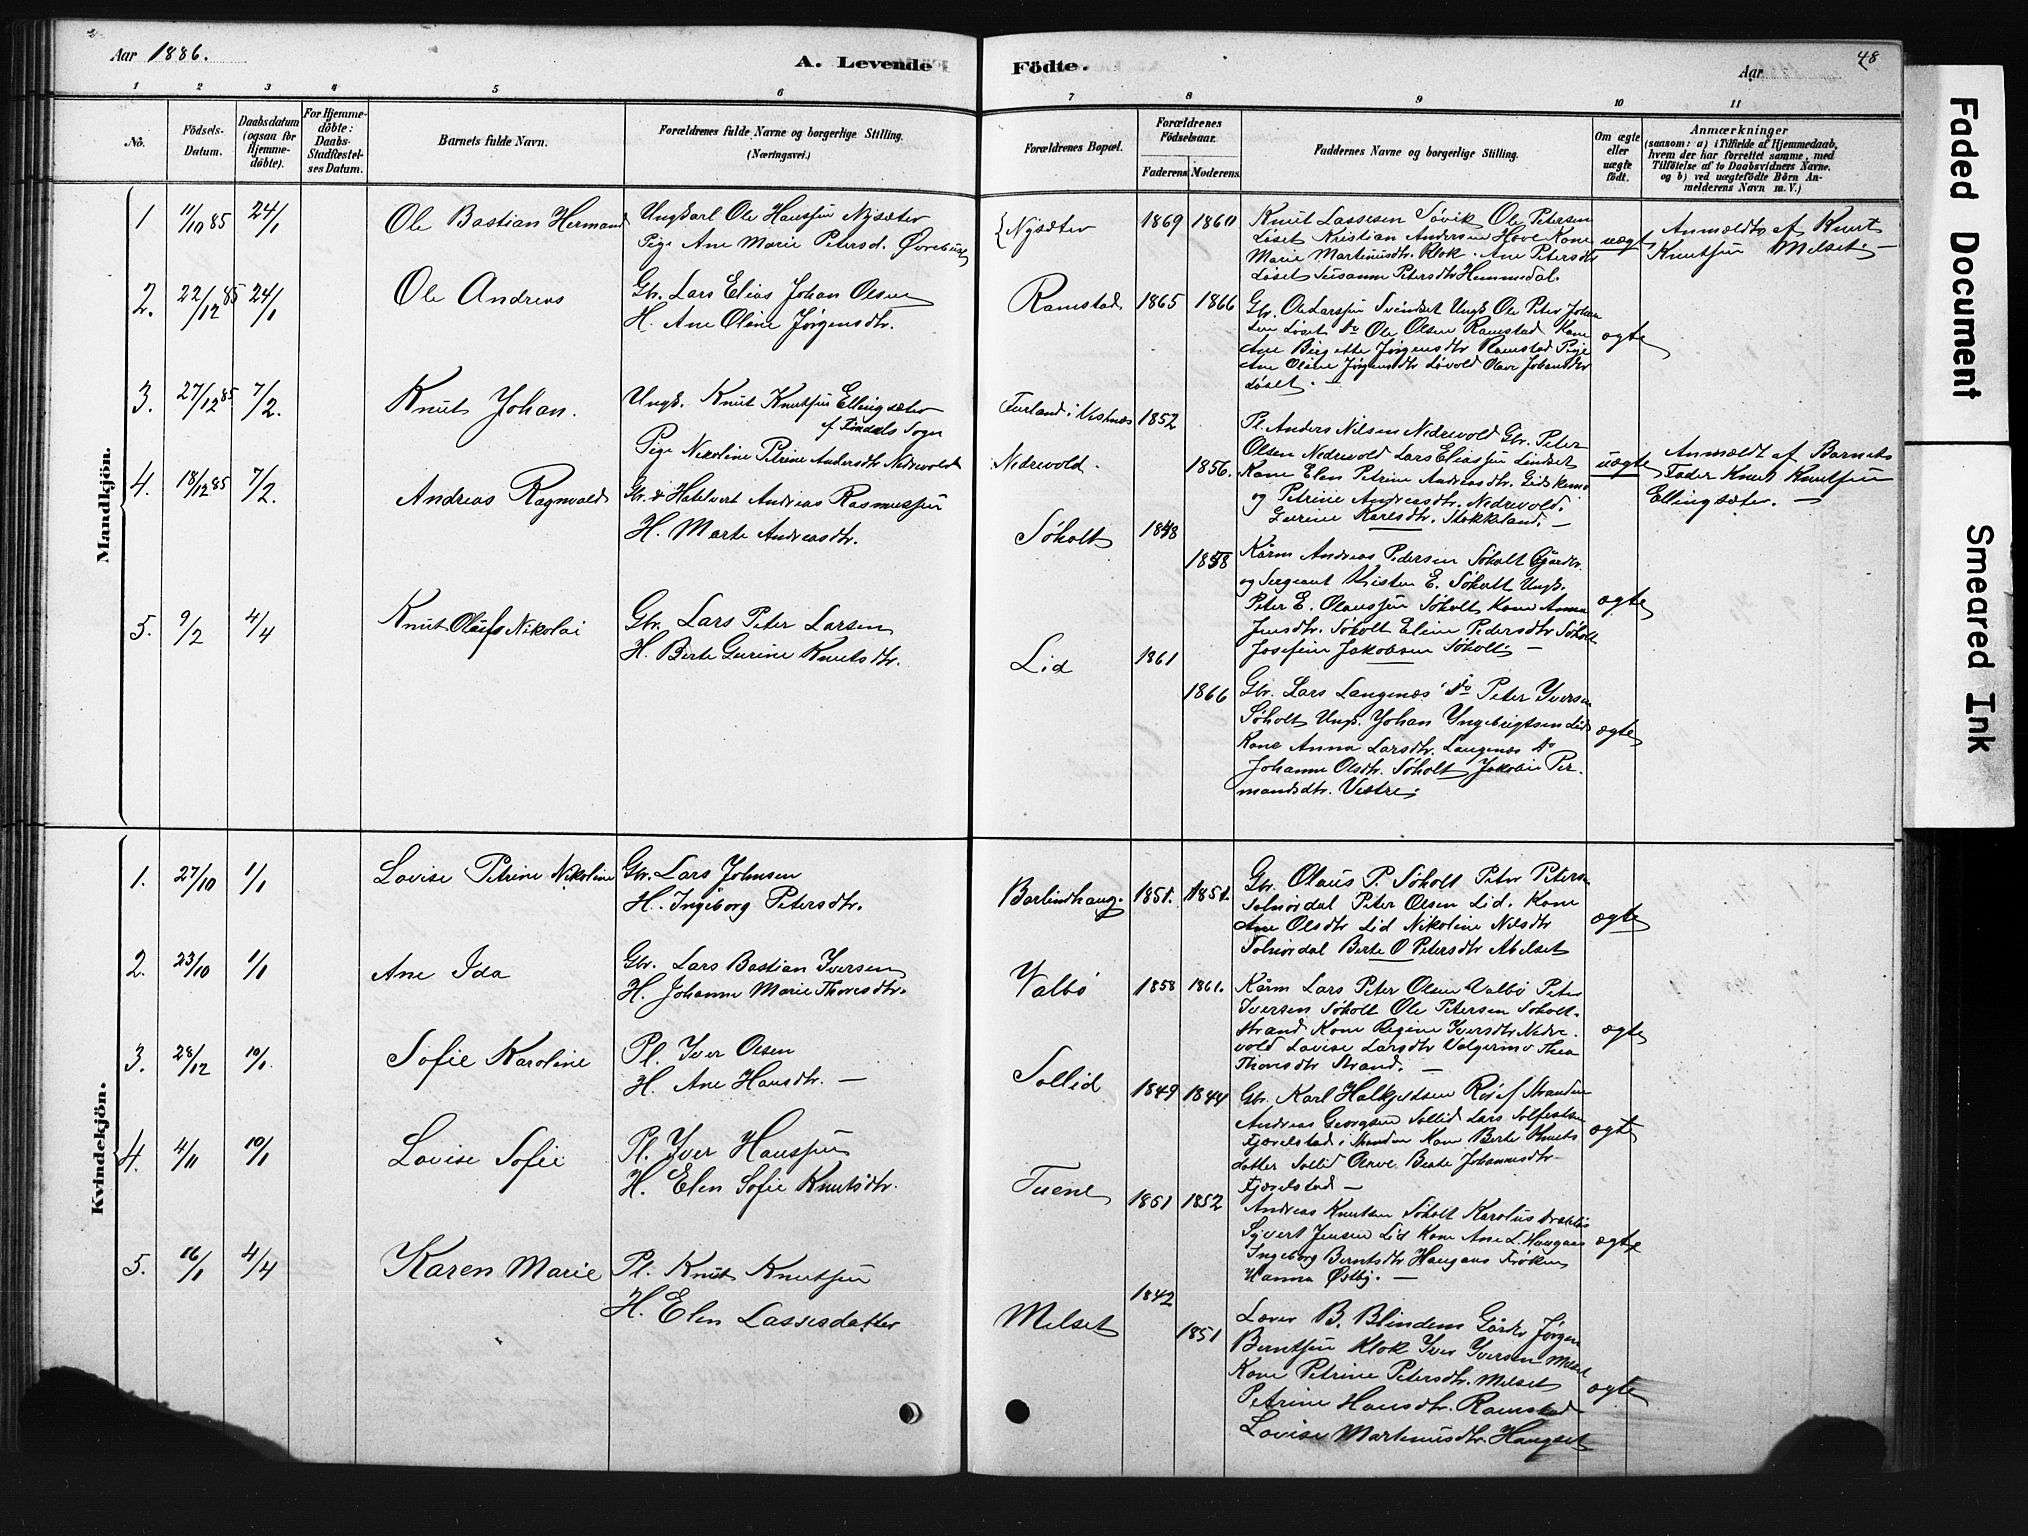 Aar 1886.
A. Levende Födte.
Aar
48
1 2 3 4 5 6 7 8 9 10 11
No.
Födsels-
Datum.
Daabsdatum
(ogsaa for
Hjemme-
döbte).
For Hjemme-
döbte:
Daabs-
Stadfæstel-
ses Datum.
Barnets fulde Navn.
Forældrenes fulde Navne og borgerlige Stilling.
(Næringsvei.)
Forældrenes Bopæl.
Forældrenes
Födselsaar.
Faderens. Moderens.
Faddernes Navne og borgerlige Stilling.
Om ægte
eller
uægte
födt.
Anmærkninger
(saasom: a) i Tilfælde af Hjemmedaab,
hvem der har forrettet samme, med
Tilföielse af to Daabsvidners Navne,
og b) ved uægtefödte Börn An-
melderens Navn m. V.)
Mandkjön.
1 11/10 85 24/1 Ole Bastian Hermand
Ungkarl Ole Hansen Nysæter
Pige Ane Marie Petersd. Øvrebust
Nysæter 1869 1860
Knut Lassesen Søvik Ole Petersen
Løset Kristian Andersen Hove Kone
Marie Martinusdtr. Klok. Ane Petersdtr
Løset Susanne Petersdtr Hemmedal.
uægt
Anmeldt af Knut
Knutsen Melset. —
2. 22/12 85 24/1 Ole Andreas
Gbr. Lars Elias Johan Olsen
H. Ane Oline Jørgensdtr.
Ramstad 1865 1866
Gbr. Ole Larssen Svendset Ungk Ole Peter Johan
sen Løset do Ole Olsen Ramstad Kone
Ane Birgette Jørgensdtr Ramstad Pige
Ane Oline Jørgensdtr Løvold Johansdtr
Løset. —
ægte
3. 27/12 85 7/2. Knut Johan.
Ungk. Knut Knutsen Ellingsæter
af Sogn
Pige Nikoline Petrine Andersdtr Nedrevold
Furland i Vestnes 1852
Nedrevold. 1856.
Pl. Anders Nilsen Nedrevold Gbr. Peter
Olsen Nedrevold Lars Eliassen Lindset
Kone Elen Petrine Andreasdtr.
og Petrine Andreasdtr. Nedrevold.
Gurine Karlsdtr. Stokkeland. —
uægte
Anmeldt af Barnets
Fader Knut Knutsen
Ellingsæter. —
4. 18/12 85 7/2. Andreas Ragnvald
Gbr. & Andreas Rasmussen
H. Marte Andreasdtr.
Søholt 1848 1858
Kårm Andreas Pedersen Søholt Gårdbr.
og Sergeant E. Søholt Ungk.
Peter E. Olaussen Søholt Kone Anna
Jensdtr. Søholt Eline Pedersdtr Søholt
Josefine Jakobsen Søholt. —
ægte
5. 9/2 4/4 Knut Olufs Nikolai
Gbr. Lars Peter Larsen
H. Berte Gurine Knutsdtr.
Lid 1861 1866
Gbr. Lars Langenæs do Peter Iversen
Søholt Ungk. Johan Yngebrigtsen Lid
Kone Anna Larsdtr. Langenæs do
Johanne Olsdtr. Søholt Jakobie Per-
mandsdtr. Vestre.
ægte
Kvindekjön.
1. 27/10 1/1 Lovise Petrine Nikoline
Gbr. Lars Johnsen
H. Ingeborg Petersdtr.
Barlindhaug. 1851. 1851.
Gbr. Olaus P. Søholt Peter Peters.
Solnørdal Peter Olsen Lid. Kone
Ane Olsdtr Lid Nikoline Nilsdtr
Solnørdal Berte O Petersdtr Abelset
ægte
2. 23/10 1/1 Ane Ida
Gbr. Lars Bastian Iversen
H. Johanne Marie Thoresdtr.
Valbø 1858 1861.
Kårm Lars Peter Olsen Valbø Peter
Iversen Søholt Ole Petersen Søholt-
strand Kone Regine Iversdtr Nedre-
vold Lovise Larsdtr Valgermo Thea
Thoresdtr Strand. —
ægte
3. 28/12 10/1. Sofie Karoline
Pl. Iver Olsen
H. Ane Hansdtr. —
Sollid 1849 1844
Gbr. Karl Halkjelsen Røs af Stranden
Andreas Georgsen Sollid Lars Solfestsen
Fjørelstad i Stranden Kone Berte Knuts
datter Sollid Beate Johannesdtr-
Fjørelstad —
ægte
4. 4/11 10/1 Lovise Sofie
Pl. Iver Hanssen
H. Elen Sofie Knutsdtr.
Tuene 1851 1852
Andreas Knutsen Søholt Karolus
Syvert Jensen Lid Kone Ane L. Haugaas
Ingeborg Berntsdtr Haugaas Frøken
Hanna Østby. —
ægte
5. 16/1 4/4 Karen Marie
Pl. Knut Knutsen
H. Elen Lassesdatter
Melset 1842 1851
Lærer B. Blindem Gårdbr Jørgen
Berntsen Klok Iver Iversen Melset
Kone Petrine Petersdtr. Melset
Petrine Hansdtr. Ramstad
Lovise Martinusdtr. Haugset
ægte
Faded Document
Smeared Ink